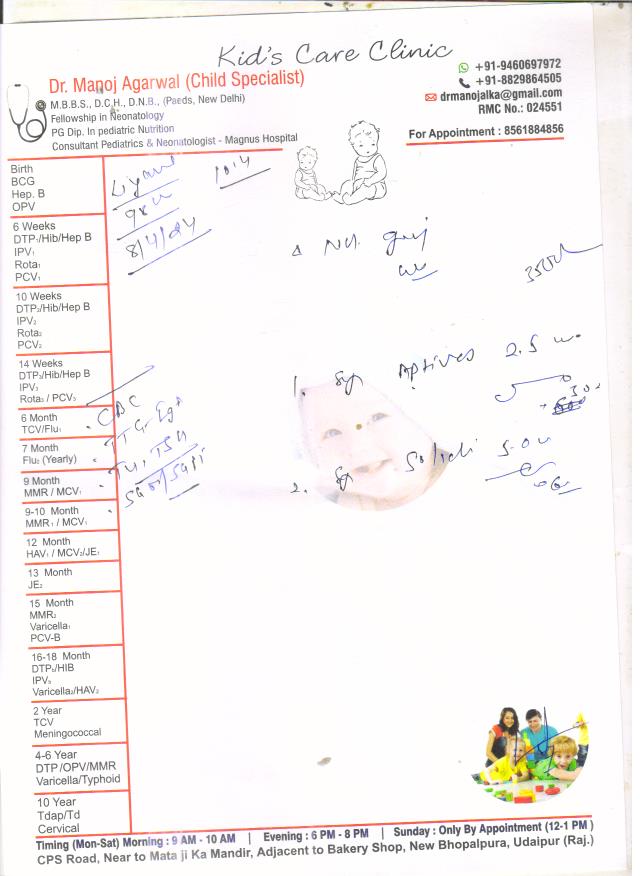 Kid's Care Clinic
Dr. Manoj Agarwal (Child Specialist)
M.B.B.S., D.C.H., D.N.B., (Paeds, New Delhi)
Fellowship in Neonatology
PG Dip. In pediatric Nutrition
Consultant Pediatrics & Neonatologist - Magnus Hospital
+91-9460697972
+91-8829864505
drmanojalka@gmail.com
RMC No.: 024551
For Appointment : 8561884856
Birth
BCG
Hep. B
OPV
10.4
8/4/24
6 Weeks
DTP₁/Hib/Hep B
IPV₁
Rota₁
PCV₁
10 Weeks
DTP₂/Hib/Hep B
IPV₂
Rota₂
PCV₂
14 Weeks
DTP₃/Hib/Hep B
IPV₃
Rota₃ / PCV₃
1. Syp Aptives 2.5
6 Month
TCV/Flu₁
CBC
TTG IgA
7 Month
Flu₂ (Yearly)
T4, TSH
2. Syp 5.0
9 Month
MMR / MCV₁
SGOT/SGPT
9-10 Month
MMR₁ / MCV₁
12 Month
HAV₁ / MCV₂/JE₁
13 Month
JE₂
15 Month
MMR₂
Varicella₁
PCV-B
16-18 Month
DTP₄/HIB
IPV₅
Varicella₂/HAV₂
2 Year
TCV
Meningococcal
4-6 Year
DTP /OPV/MMR
Varicella/Typhoid
10 Year
Tdap/Td
Cervical
Timing (Mon-Sat) Morning : 9 AM - 10 AM | Evening : 6 PM - 8 PM | Sunday : Only By Appointment (12-1 PM )
CPS Road, Near to Mata ji Ka Mandir, Adjacent to Bakery Shop, New Bhopalpura, Udaipur (Raj.)